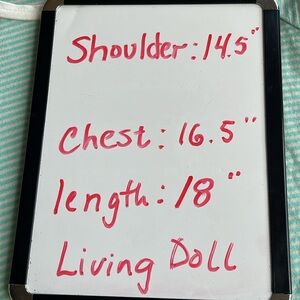 Shoulder: 14.5"
Chest: 16.5"
length: 18"
Living Doll